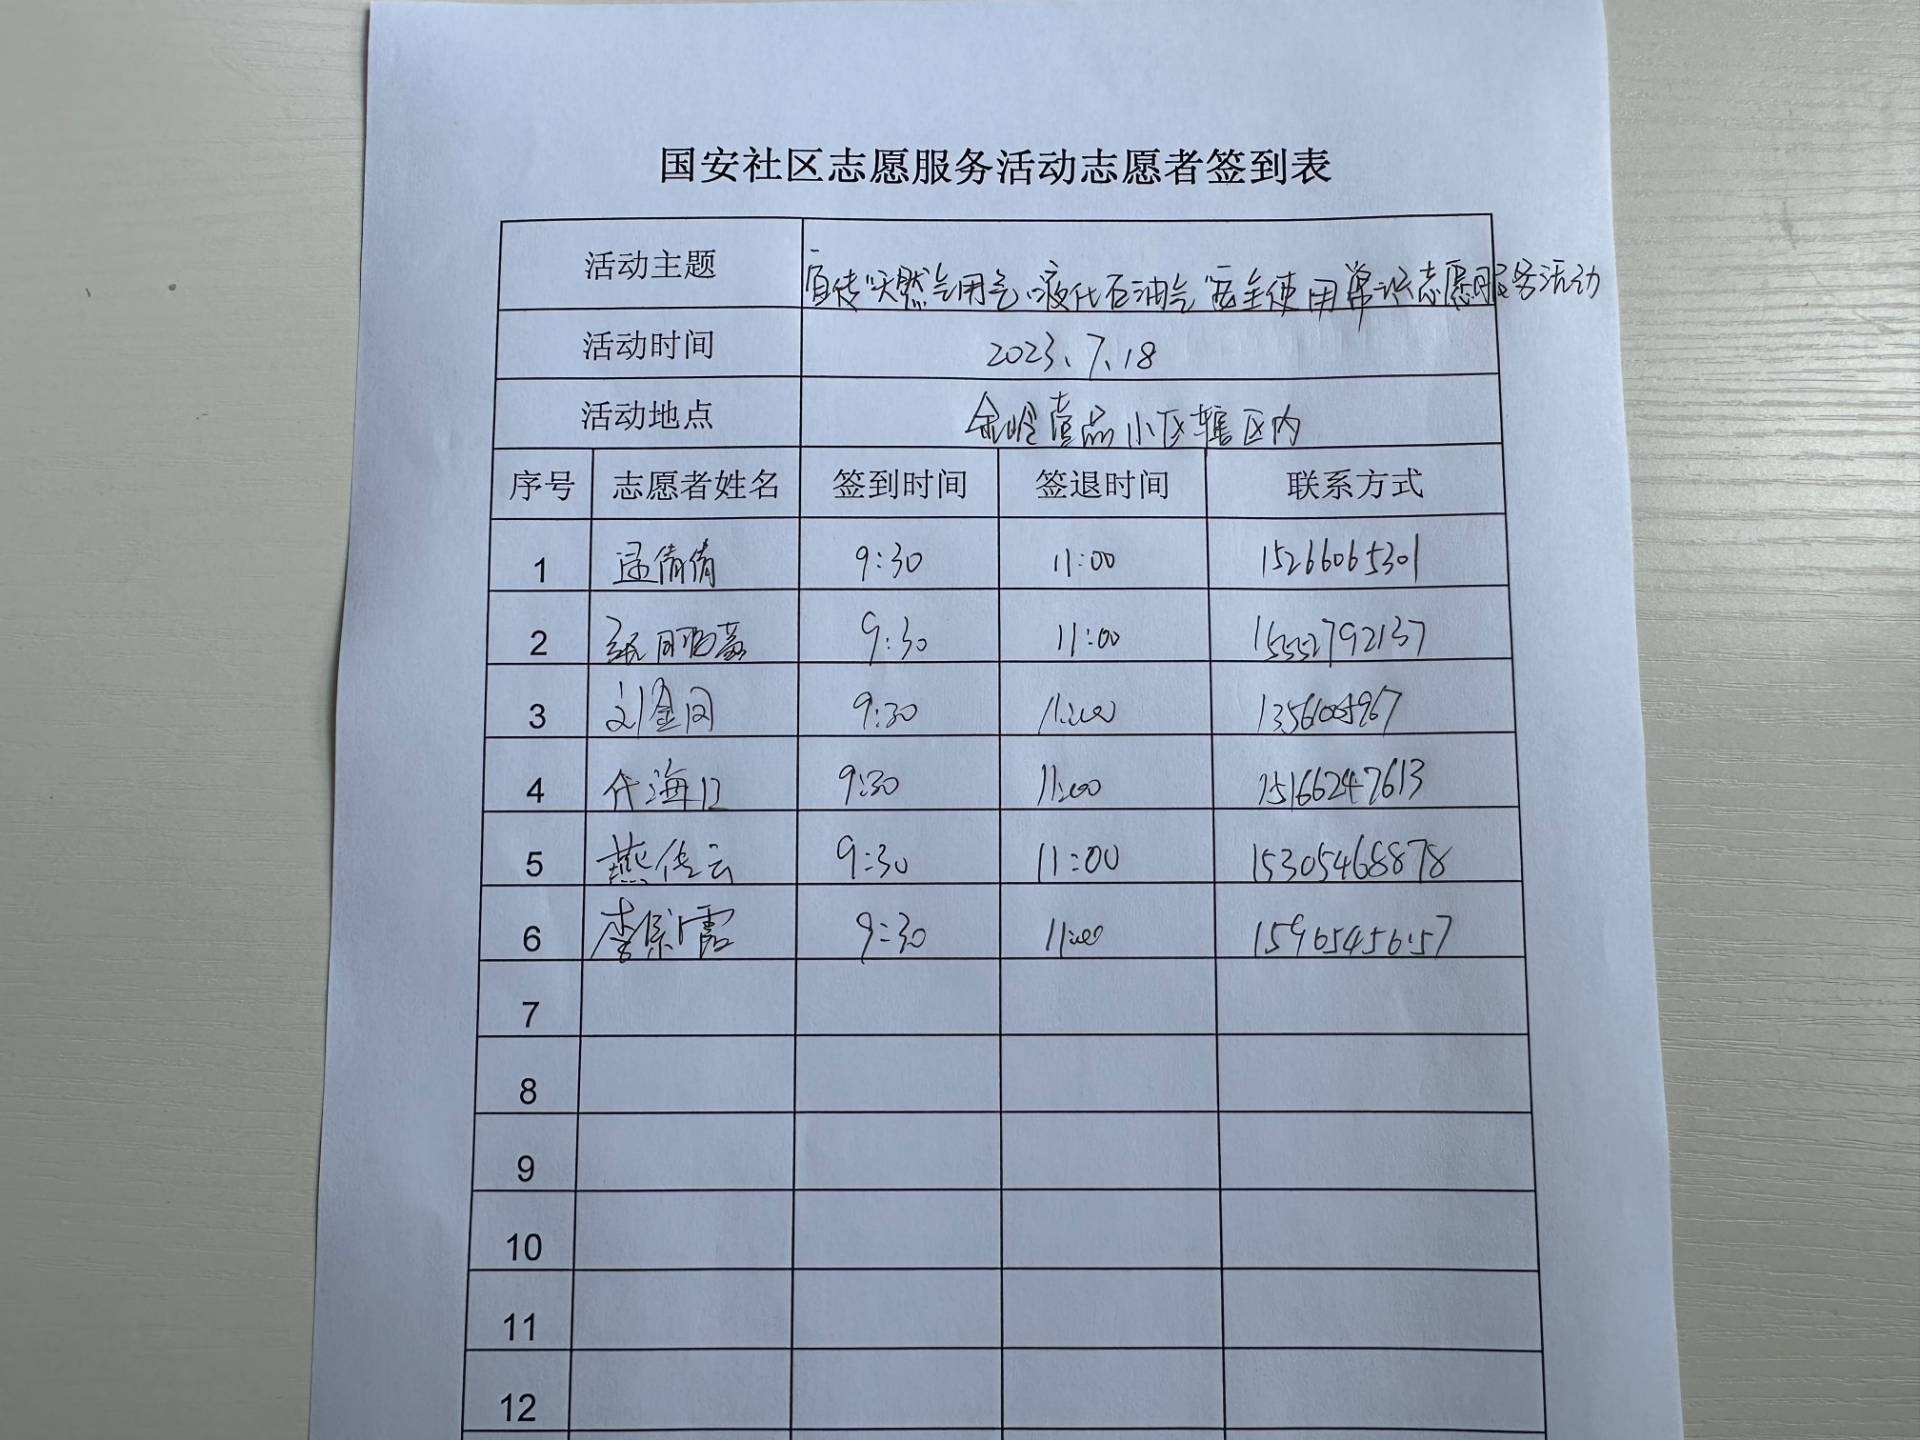 国安社区志愿服务活动志愿者签到表
活动主题 宣传"天然气用气、液化石油气"安全使用常识志愿服务活动
活动时间 2023.7.18
活动地点 金岭壹品小区辖区内
序号 志愿者姓名 签到时间 签退时间 联系方式
1 孟倩倩 9:30 11:00 15266065301
2 9:30 11:00 15552792137
3 9:30 11:00
4 代海江 9:30 11:00 15166247613
5 燕传云 9:30 11:00 15305468878
6 9:30 11:00
7
8
9
10
11
12